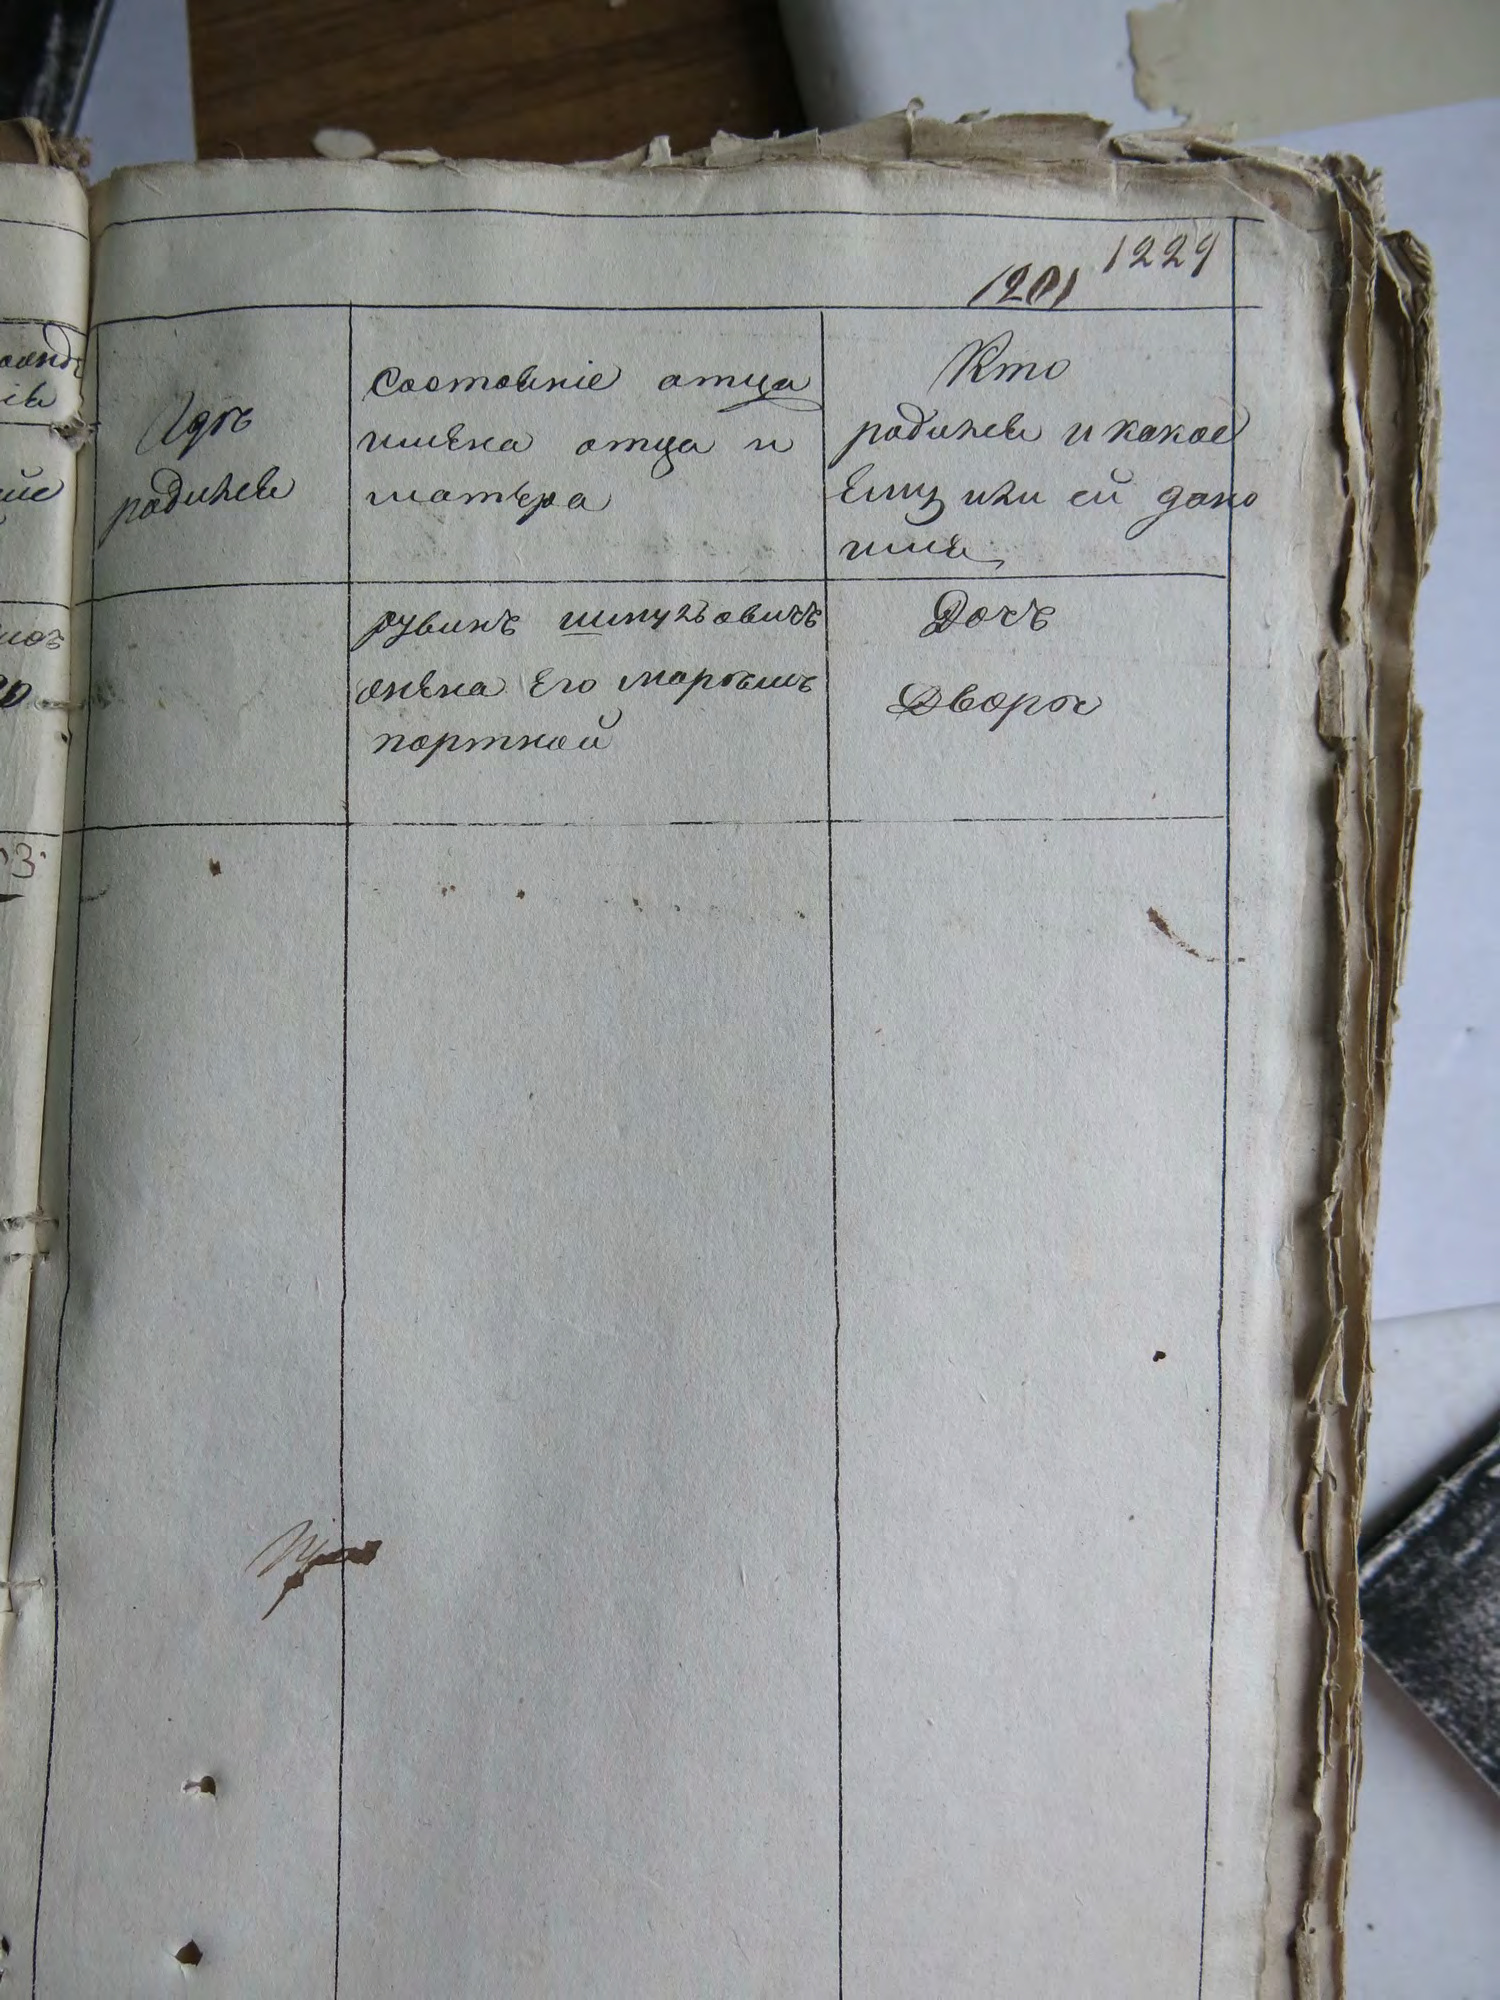 1229
1201
Гдѣ
родился
Состояніе отца
имена отца и
матера
Кто
родился и какое
Ему или ей дано
имя
рувинъ шмульовичъ
жена Его
портной
Дочь
Двора